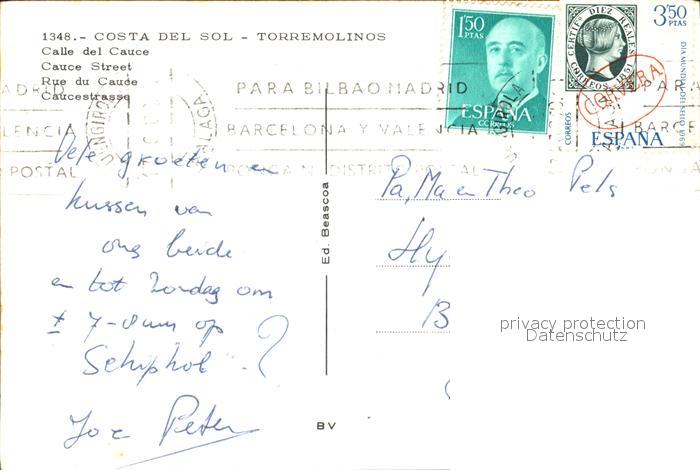 1348.- COSTA DEL SOL - TORREMOLINOS
Calle del Cauce
Cauce Street
Rue du Caude
Caucestrasse
1'50 PTAS
ESPAÑA
CORREOS
CERTIFº DIEZ REALES
CORREOS 1851
3'50 PTAS
DIA MUNDIAL DEL SELLO 1969
CORREOS
CORVERA
ESPAÑA
ADRID PARA BILBAO MADRID PARA
LENCIA BARCELONA Y VALENCIA BARCE
POSTAL PONGA Nº DISTRITO POSTAL PONGA
MALAGA
Vele groeten en
kussen van
ons beide
en tot Zondag om
± 7-8 uur op
Schiphol ?
Joz Peter
Ed. Beascoa
BV
Pa, Ma en Theo Pels
Hy
B
privacy protection
Datenschutz